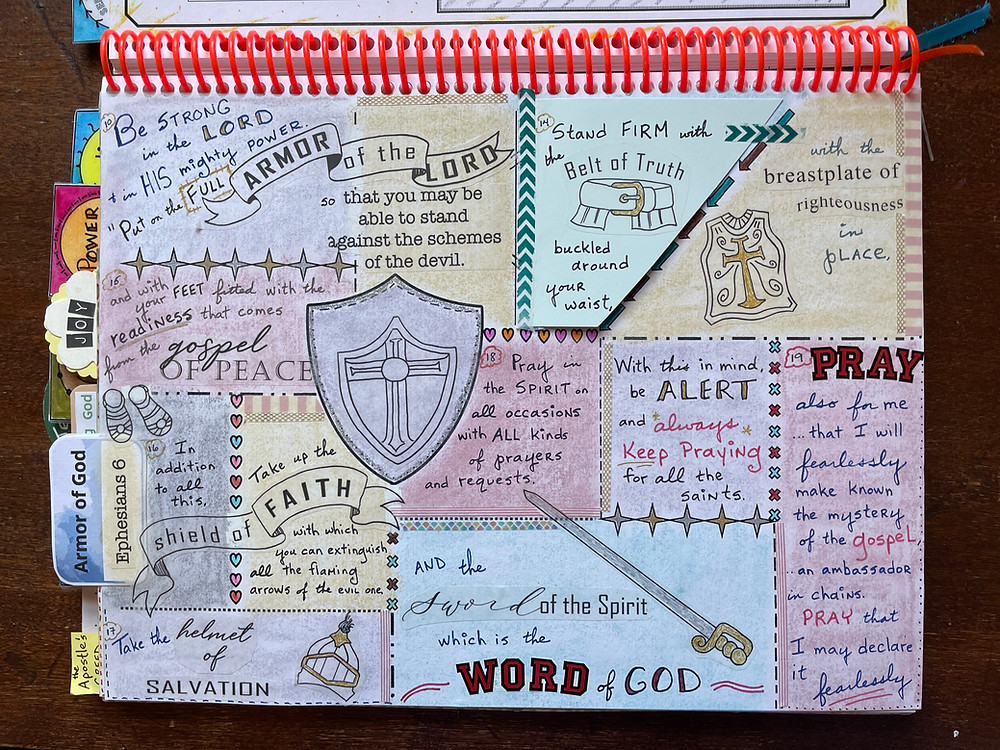 10
Be STRONG
in the LORD
+ in HIS mighty POWER.
"Put on the FULL ARMOR of the LORD
so that you may be
able to stand
against the schemes
of the devil.
14
Stand FIRM with
the
Belt of Truth
buckled
around
your
waist,
with the
breastplate of
righteousness
in
PLACE,
15
and with
your FEET fitted with the
readiness that comes
from the gospel
OF PEACE
16
In
addition
to all
this,
Take up the
shield of FAITH
with which
you can extinguish
all the flaming
arrows of the evil one.
17
Take the helmet
of
SALVATION
AND the
sword of the Spirit
which is the
WORD of GOD
18
Pray in
the SPIRIT on
all occasions
with ALL kinds
of prayers
and requests.
With this in mind,
be ALERT
and always
Keep Praying
for all the
saints.
19
PRAY
also for me
...that I will
fearlessly
make known
the mystery
of the gospel,
...an ambassador
in chains.
PRAY that
I may declare
it
fearlessly
POWER
JOY
God
Armor of God
Ephesians 6
the
Apostle's